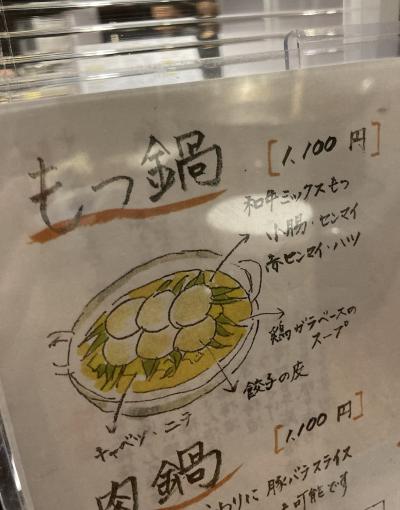 もつ鍋
[1,100円]
和牛ミックスもつ
小腸・センマイ
赤センマイ・ハツ
鶏ガラベースの
スープ
餃子の皮
キャベツ・ニラ
肉鍋
[1,100円]
わりに豚バラスライス
も可能です